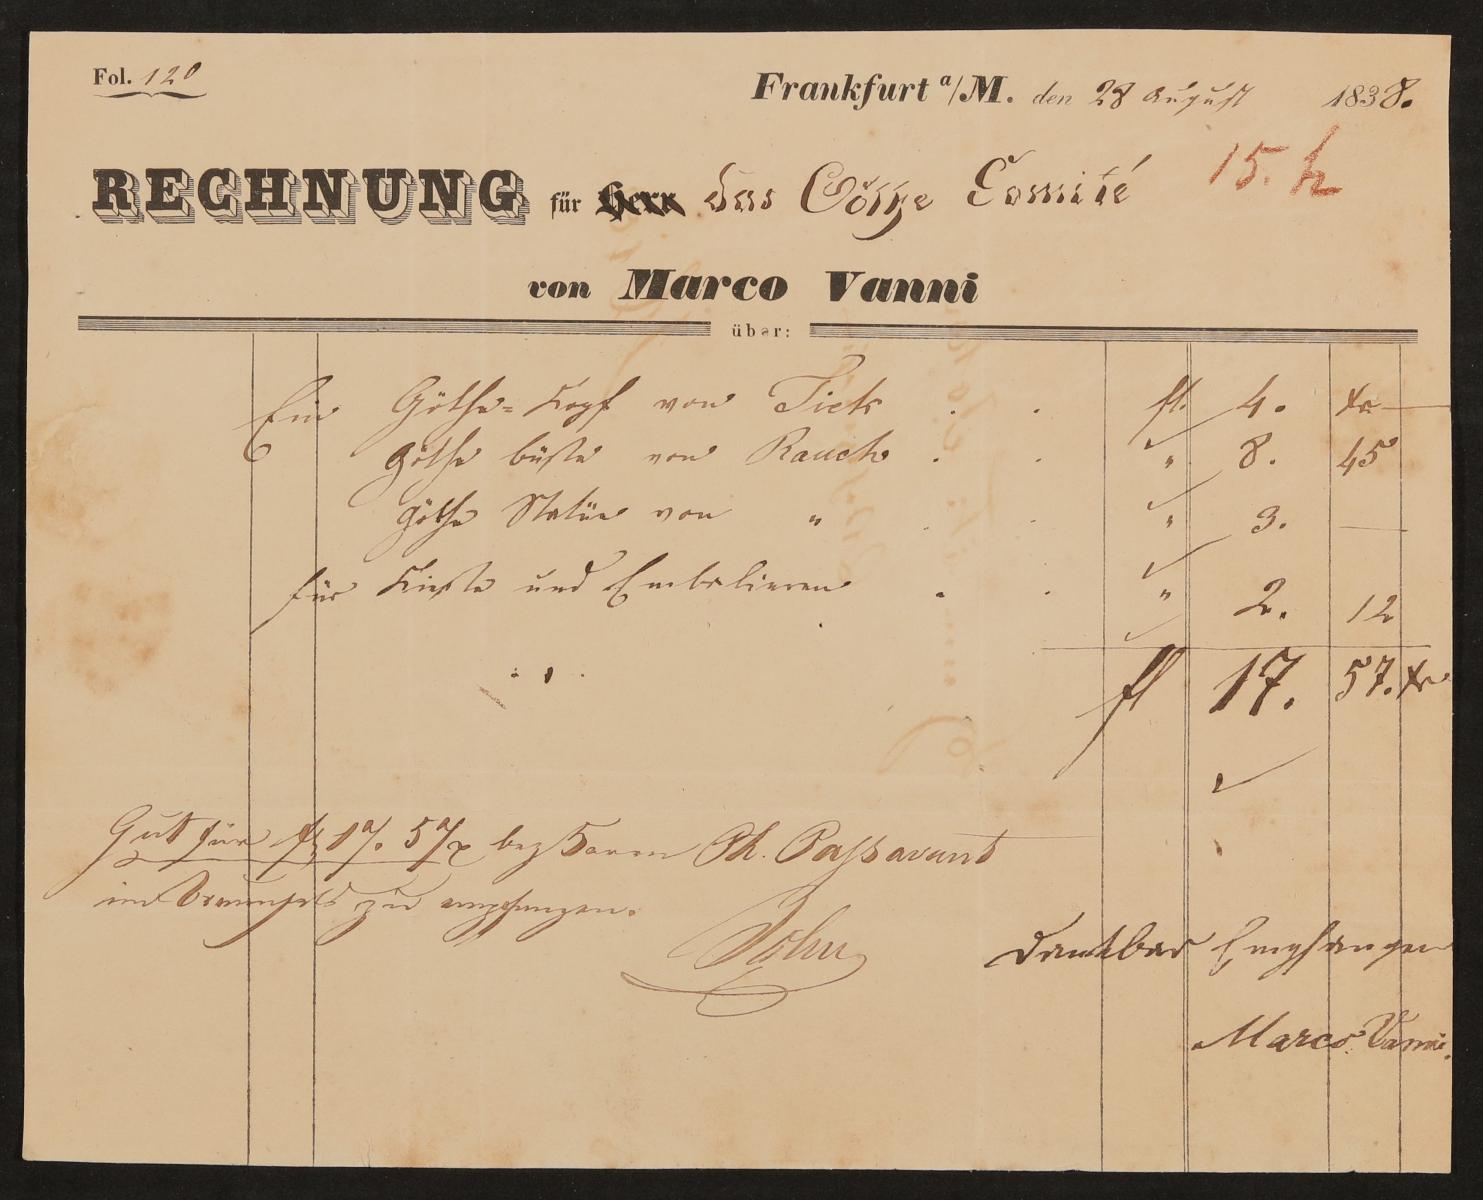 Fol. 120
Frankfurt a/M. den 28 August 1838.
15. h
RECHNUNG für Herr das Göthe Comité
von Marco Vanni
über:
Ein Göthe=Kopf von Tieck . . fl. 4. Xr —
Göthe büste von Rauch . . " 8. 45
Göthe Statüe von " . . " 3. —
für Kieste und Embalieren . . " 2. 12
fl 17. 57. Xr
Gutt für fl 17. 57 bey Herrn Ph. Passavant
im Braunfels zu empfangen.
John
Dankbar Empfangen
Marco Vanni.